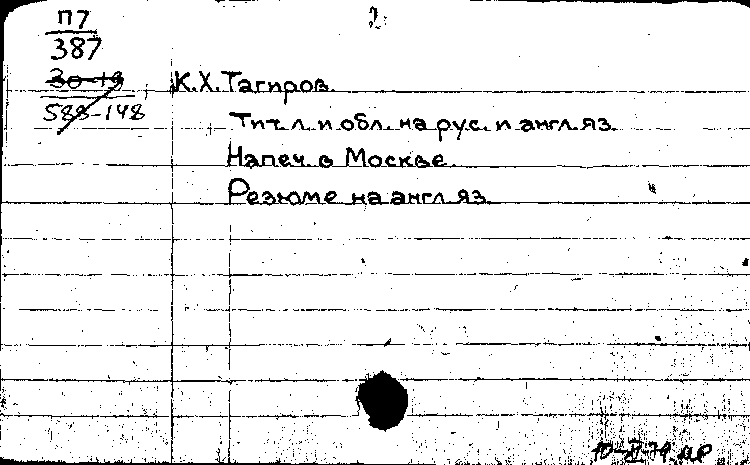 П7
387
2
30-19
588-148
К.Х. Тагиров.
Тит. л. и обл. на рус. и англ. яз.
Напеч. в Москве.
Резюме на англ. яз.